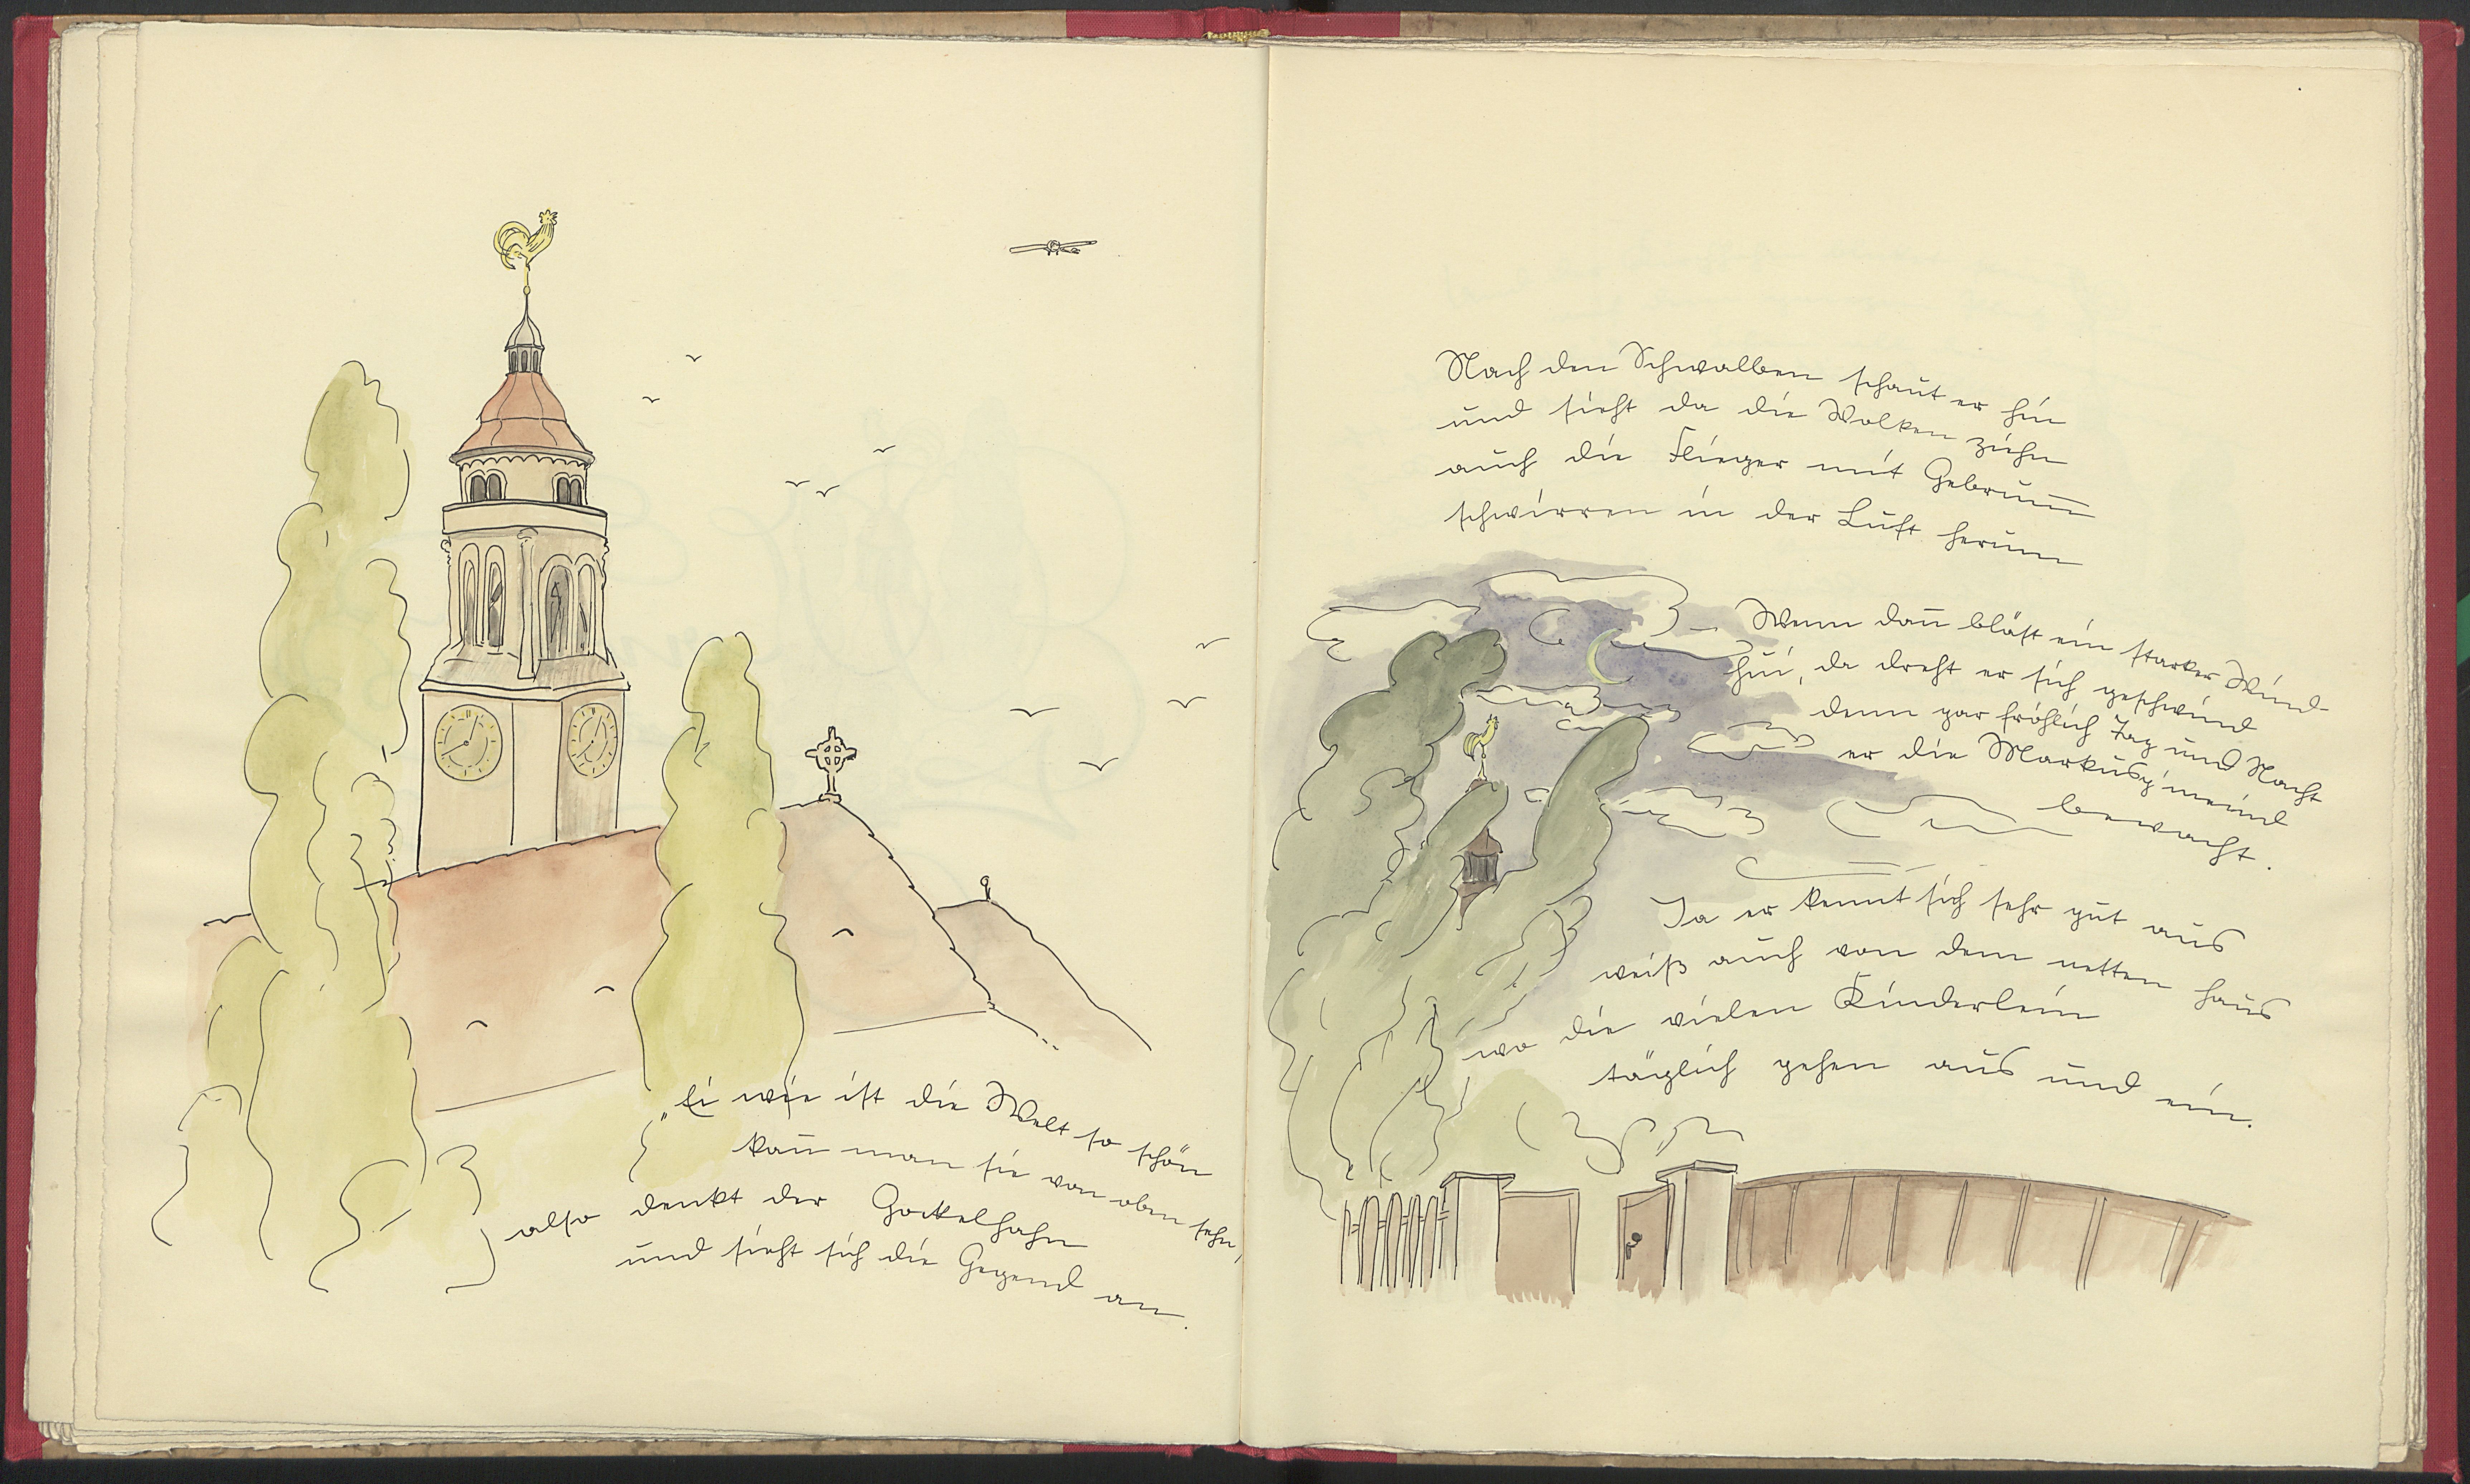 „Ei wie ist die Welt so schön
kan̄ man sie von oben sehn,
also denkt der Gockelhahn
und sieht sich die Gegend an.
Nach den Schwalben schaut er hin
und sieht da die Wolken ziehn
auch die Flieger mit Gebrum̄
schwirren in der Luft herum
Wenn dan̄ bläst ein starker Wind
hui, da dreht er sich geschwind
denn gar fröhlich Tag und Nacht
er die Markusg'meind
bewacht.
Ja er kennt sich sehr gut aus
weiß auch von dem netten Haus
wo die vielen Kinderlein
täglich gehen aus und ein.